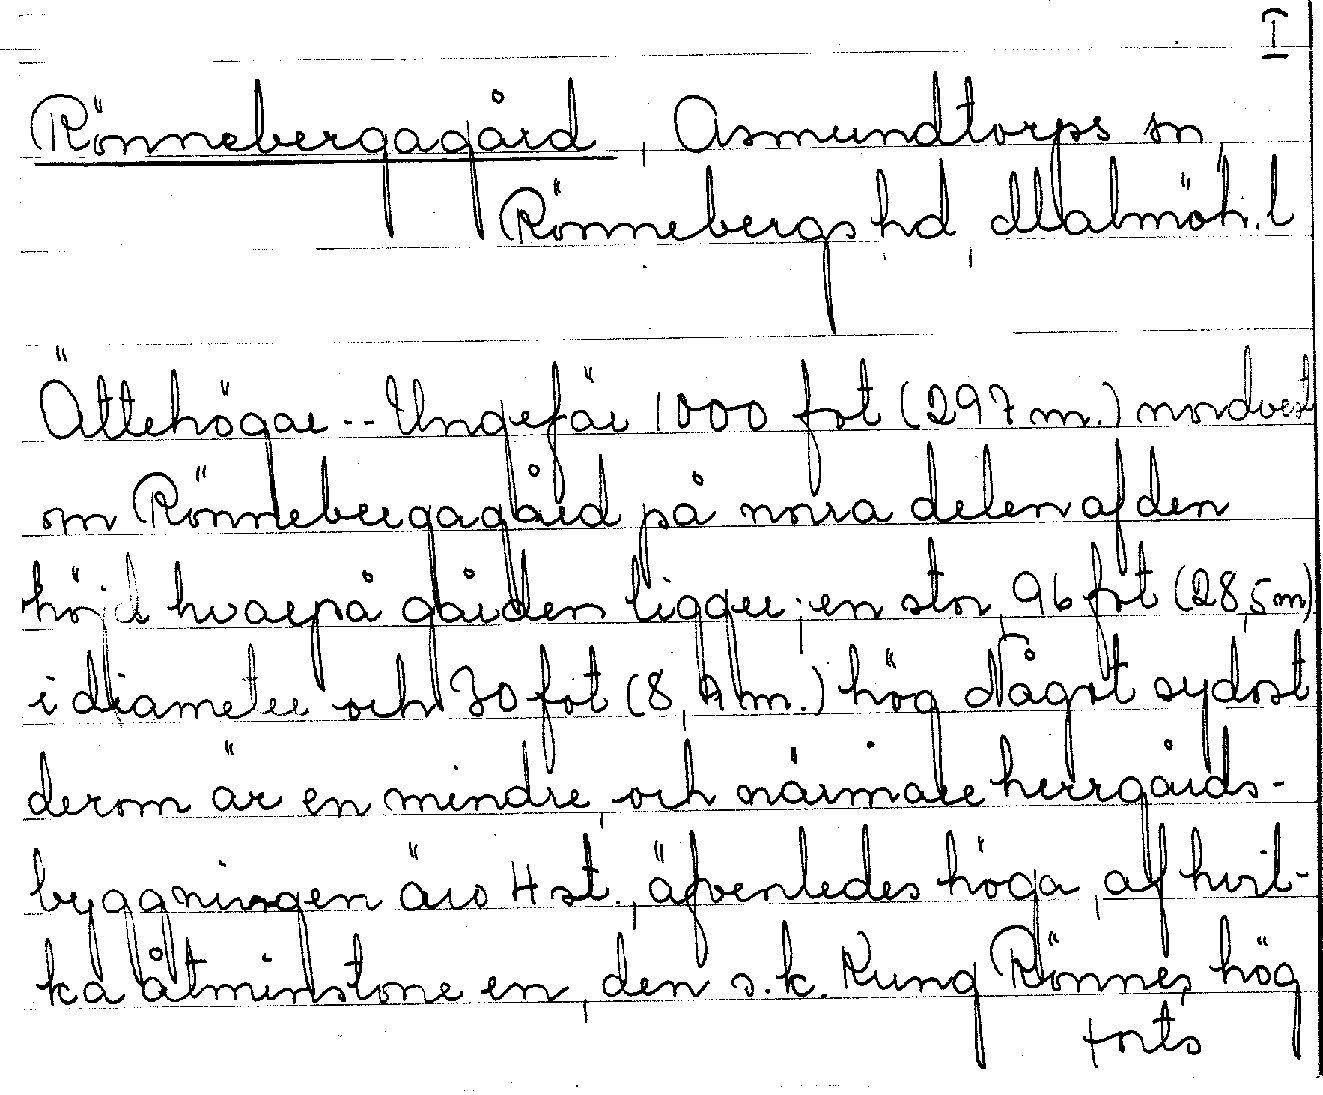 I
Rönnebergagård, Asmundtorps sn,
Rönnebergs hd, Malmöh. l
Ättehögar -- Ungefär 1000 fot (297 m.) nordvest
om Rönnebergagård på norra delen af den
höjd hvarpå gården ligger, en stor, 96 fot (28,5 m)
i diameter och 30 fot (8,9 m.) hög Något sydost
derom är en mindre, och närmare herrgårds-
byggningen äro 4 st., äfvenledes höga, af hvil-
ka åtminstone en, den s.k. Kung Rönnes hög
forts